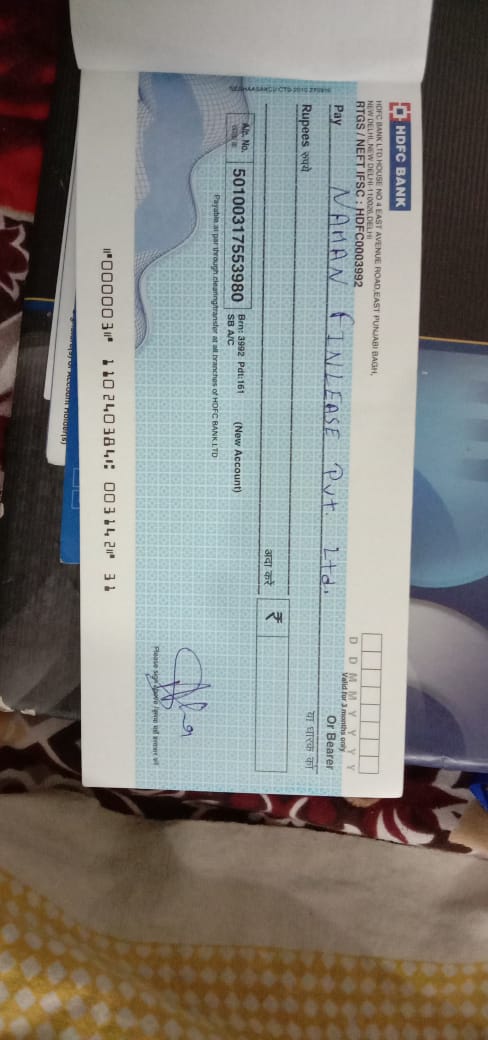 HDFC BANK
HDFC BANK LTD HOUSE NO 4 EAST AVENUE ROAD,EAST PUNJABI BAGH,
NEW DELHI,NEW DELHI-110026,DELHI
RTGS / NEFT IFSC : HDFC0003992
Valid for 3 months only
D D M M Y Y Y Y
Pay NAMAN FINLEASE Pvt. Ltd. Or Bearer
या धारक को
Rupees रुपये
अदा करें ₹
A/c. No. 50100317553980 Brn: 3992 Pdt:161 (New Account)
SB A/C
Payable at par through clearing/transfer at all branches of HDFC BANK LTD
Please sign above
⑈000003⑈ 110240384⑆ 003142⑈ 31